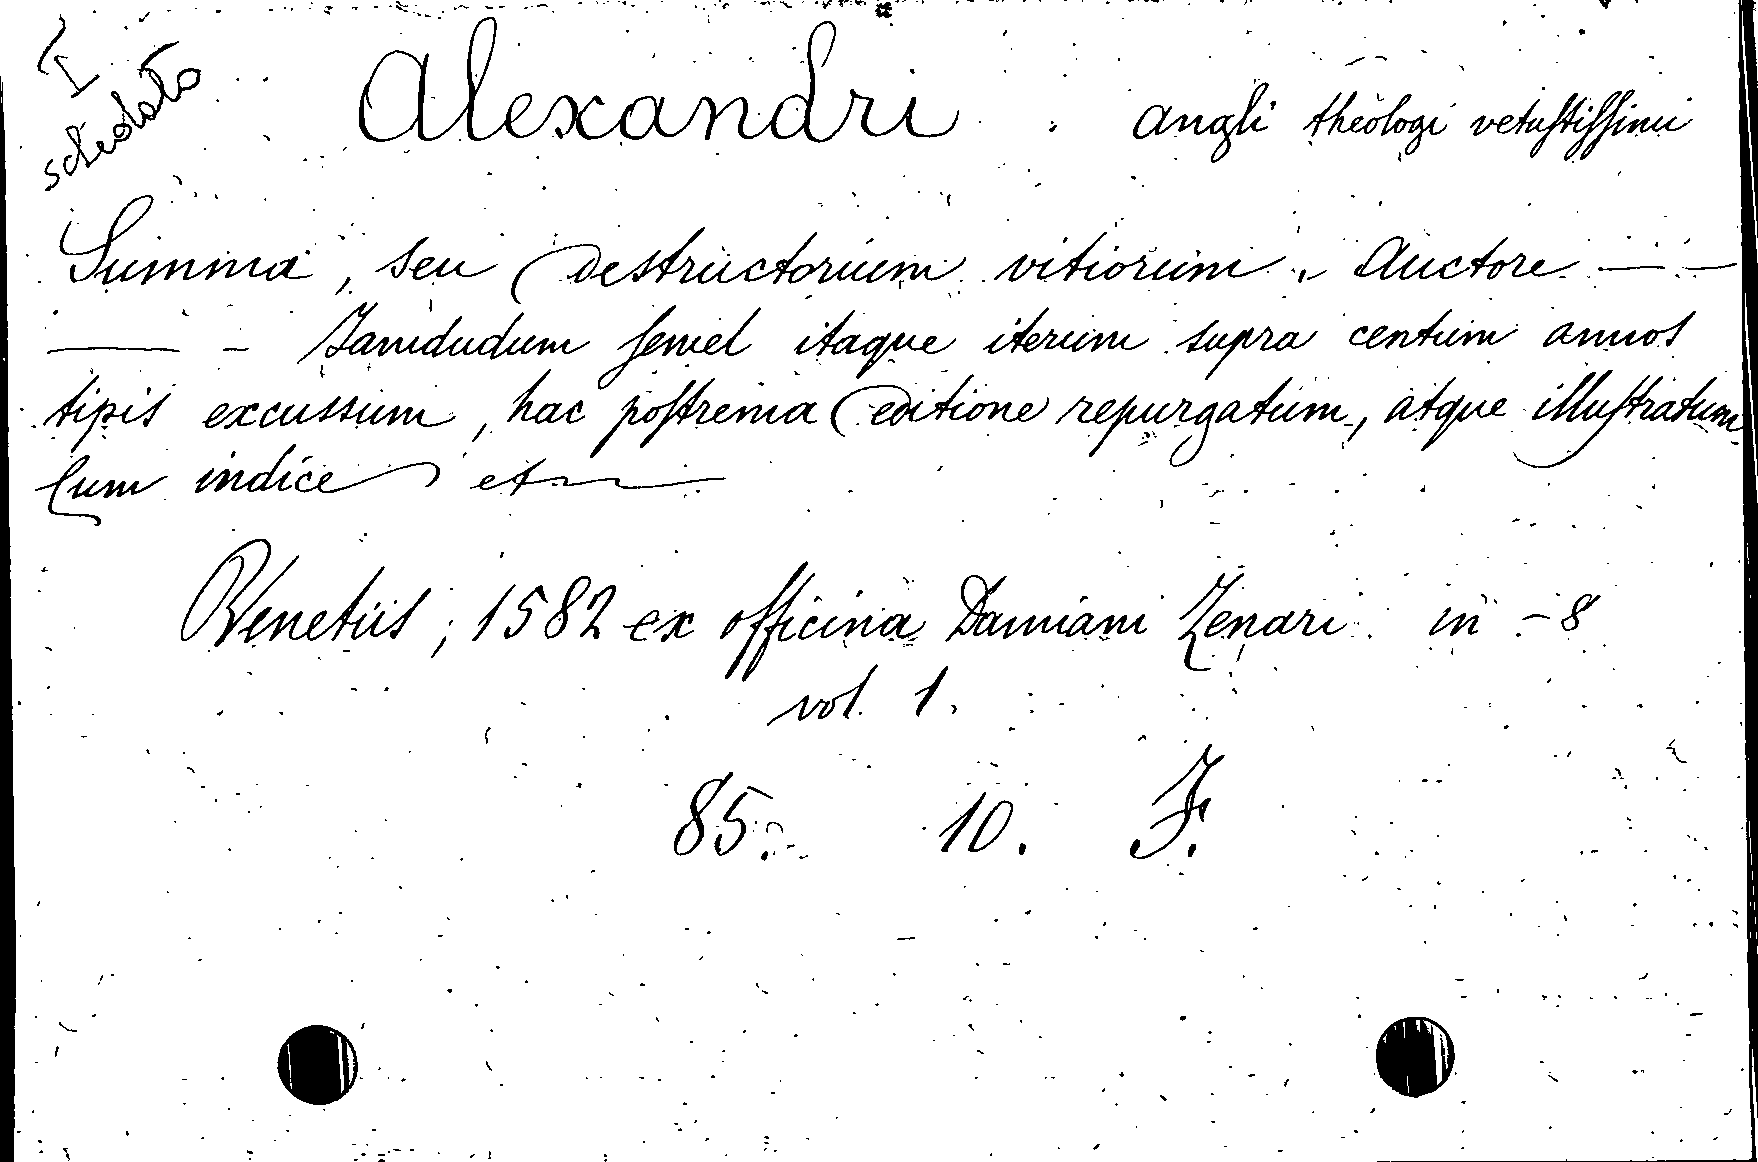 I
schedato
Alexandri . angli theologi vetustissimi
Summa, seu Destructorium vitiorum. Auctore — —
— - Jamdudum semel itaque iterum supra centum annos
tipis excussum, hac postrema editione repurgatum, atque illustratum
Cum indice et
Venetiis, 1582 ex officina Damiani Zenari in-8
vol. 1.
85. 10. F.